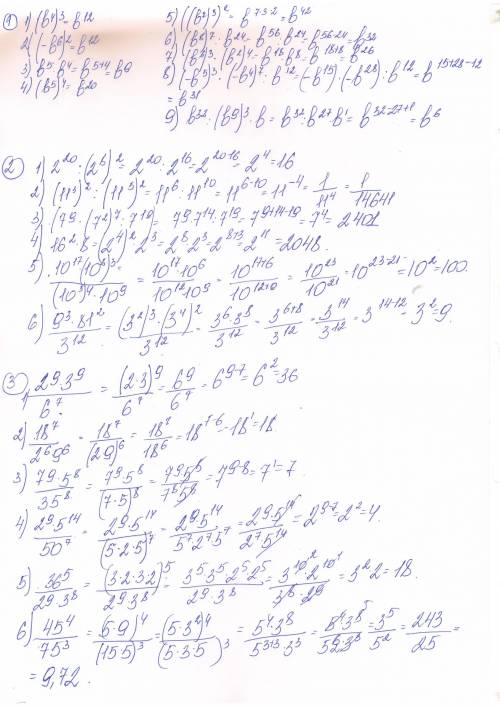 ① 1) (b⁴)³ = b¹²
2) (-b⁶)² = b¹²
3) b⁵·b⁴ = b⁵⁺⁴ = b⁹
4) (b⁵)⁴ = b²⁰
5) ((b⁷)³)² = b⁷·³·² = b⁴²
6) (b⁸)⁷ : b²⁴ = b⁵⁶ : b²⁴ = b⁵⁶⁻²⁴ = b³²
8) (-b⁵)³ · (-b⁴)⁷ : b¹² = (-b¹⁵) · (-b²⁸) : b¹² = b¹⁵⁺²⁸⁻¹²
= b³¹
9) b³² : (b⁹)³ · b = b³² : b²⁷ · b¹ = b³²⁻²⁷⁺¹ = b⁶
② 1) 2²⁰ : (2⁸)² = 2²⁰ : 2¹⁶ = 2²⁰⁻¹⁶ = 2⁴ = 16
2) (11³)² : (11⁵)² = 11⁶ : 11¹⁰ = 11⁶⁻¹⁰ = 11⁻⁴ = 1/11⁴ = 1/14641
3) (7⁹ · (7²)⁷ : 7¹⁹) = 7⁹ · 7¹⁴ : 7¹⁹ = 7⁹⁺¹⁴⁻¹⁹ = 7⁴ = 2401
4) 16² · 8 = (2⁴)² · 2³ = 2⁸ · 2³ = 2⁸⁺³ = 2¹¹ = 2048.
5) 10¹⁷·(10²)³ / (10³)⁴·10⁹ = 10¹⁷·10⁶ / 10¹²·10⁹ = 10¹⁷⁺⁶ / 10¹²⁺⁹ = 10²³ / 10²¹ = 10²³⁻²¹ = 10² = 100.
6) 9³·81² / 3¹² = (3²)³·(3⁴)² / 3¹² = 3⁶·3⁸ / 3¹² = 3⁶⁺⁸ / 3¹² = 3¹⁴ / 3¹² = 3¹⁴⁻¹² = 3² = 9.
③ 1) 2⁹·3⁹ / 6⁷ = (2·3)⁹ / 6⁷ = 6⁹ / 6⁷ = 6⁹⁻⁷ = 6² = 36
2) 18⁷ / 2⁶9⁶ = 18⁷ / (2·9)⁶ = 18⁷ / 18⁶ = 18⁷⁻⁶ = 18¹ = 18
3) 7⁹·5⁸ / 35⁸ = 7⁹·5⁸ / (7·5)⁸ = 7⁹5⁸ / 7⁸5⁸ = 7⁹⁻⁸ = 7¹ = 7.
4) 2⁹5¹⁴ / 50⁷ = 2⁹·5¹⁴ / (5·2·5)⁷ = 2⁹·5¹⁴ / 5⁷2⁷5⁷ = 2⁹·5¹⁴ / 2⁷5¹⁴ = 2⁹⁻⁷ = 2² = 4.
5) 36⁵ / 2⁹·3⁸ = (3·2·3·2)⁵ / 2⁹3⁸ = 3⁵3⁵2⁵2⁵ / 2⁹·3⁸ = 3¹⁰·2¹⁰ / 3⁸·2⁹ = 3²2 = 18.
6) 45⁴ / 75³ = (5·9)⁴ / (15·5)³ = (5·3²)⁴ / (5·3·5)³ = 5⁴·3⁸ / 5³⁺³·3³ = 5⁴3⁸ / 5²·3³ = 3⁵ / 5² = 243 / 25 =
= 9,72.